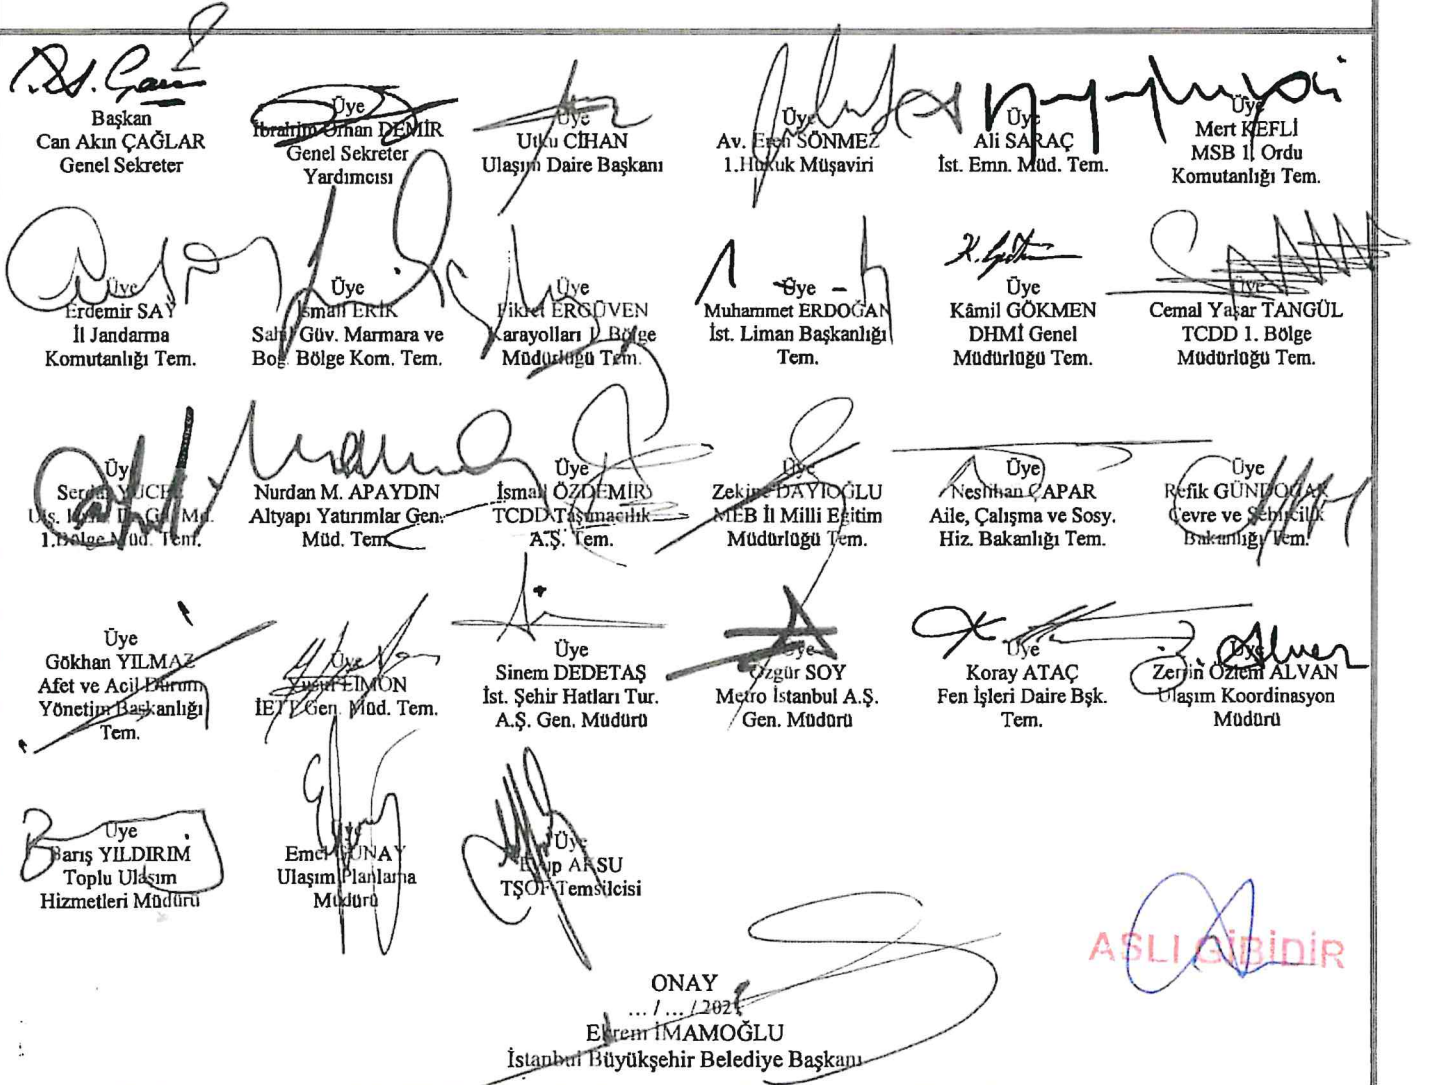 Başkan
Can Akın ÇAĞLAR
Genel Sekreter
Üye
İbrahim Orhan DEMİR
Genel Sekreter
Yardımcısı
Üye
Utku CİHAN
Ulaşım Daire Başkanı
Üye
Av. Eren SÖNMEZ
1.Hukuk Müşaviri
Üye
Ali SARAÇ
İst. Emn. Müd. Tem.
Üye
Mert KEFLİ
MSB 1. Ordu
Komutanlığı Tem.
Üye
Erdemir SAY
İl Jandarma
Komutanlığı Tem.
Üye
İsmail ERİK
Sahil Güv. Marmara ve
Boğ. Bölge Kom. Tem.
Üye
Fikret ERGÜVEN
Karayolları 1. Bölge
Müdürlüğü Tem.
Üye
Muhammet ERDOĞAN
İst. Liman Başkanlığı
Tem.
Üye
Kâmil GÖKMEN
DHMİ Genel
Müdürlüğü Tem.
Üye
Cemal Yaşar TANGÜL
TCDD 1. Bölge
Müdürlüğü Tem.
Üye
Serdar YÜCEL
1.Bölge Müd. Tem.
Nurdan M. APAYDIN
Altyapı Yatırımlar Gen.
Müd. Tem.
Üye
İsmail ÖZDEMİR
TCDD Taşımacılık
A.Ş. Tem.
Üye
Zekine DAYIOĞLU
MEB İl Milli Eğitim
Müdürlüğü Tem.
Üye
Neslihan ÇAPAR
Aile, Çalışma ve Sosy.
Hiz. Bakanlığı Tem.
Üye
Refik GÜNDOĞAN
Çevre ve Şehircilik
Bakanlığı Tem.
Üye
Gökhan YILMAZ
Afet ve Acil Durum
Yönetim Başkanlığı
Tem.
Üye
Yusuf LİMON
İETT Gen. Müd. Tem.
Üye
Sinem DEDETAŞ
İst. Şehir Hatları Tur.
A.Ş. Gen. Müdürü
Üye
Özgür SOY
Metro İstanbul A.Ş.
Gen. Müdürü
Üye
Koray ATAÇ
Fen İşleri Daire Bşk.
Tem.
Üye
Zerrin Özlem ALVAN
Ulaşım Koordinasyon
Müdürü
Üye
Barış YILDIRIM
Toplu Ulaşım
Hizmetleri Müdürü
Üye
Emel GÜNAY
Ulaşım Planlama
Müdürü
Üye
Eyüp AKSU
TŞOF Temsilcisi
ASLI GİBİDİR
ONAY
... / ... / 202
Ekrem İMAMOĞLU
İstanbul Büyükşehir Belediye Başkanı